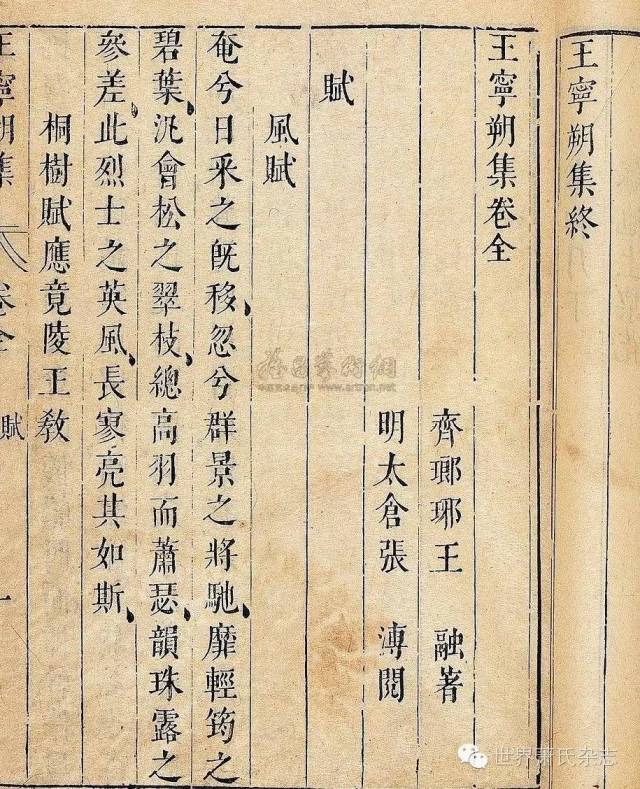 王寧朔集終
王寧朔集卷全
齊瑯琊王 融著
明太倉張 溥閱
賦
風賦
奄兮日采之旣移、忽兮群景之將馳、靡輕筠之
碧葉、汎會松之翠枝、總高羽而蕭瑟、韻珠露之
參差、此烈士之英風、長寥亮其如斯、
桐樹賦應竟陵王敎
王寧朔集 卷全 賦 一
www.artron.net
世界萧氏杂志